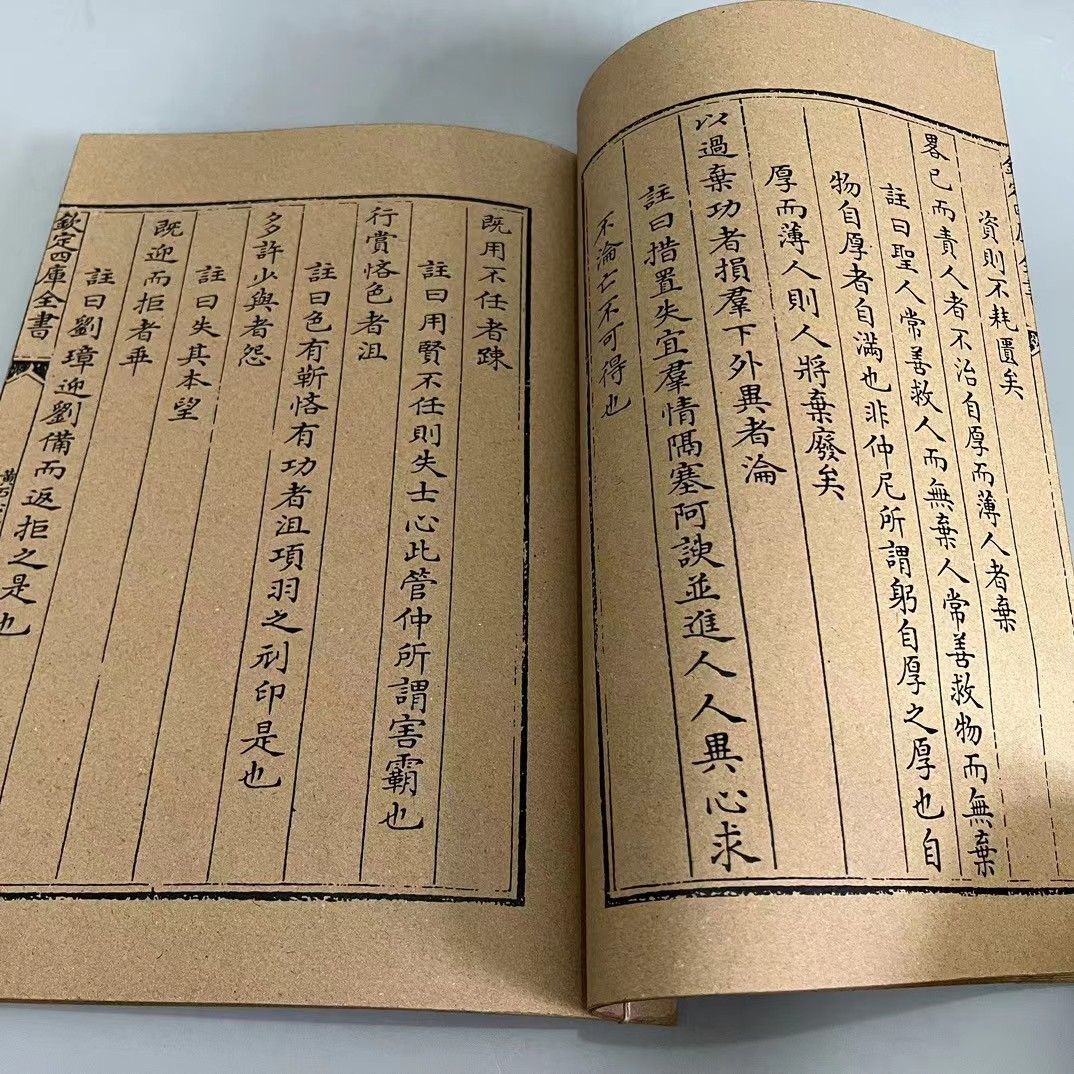 資則不耗匱矣
畧己而責人者不治自厚而薄人者棄
註曰聖人常善救人而無棄人常善救物而無棄
物自厚者自滿也非仲尼所謂躬自厚之厚也自
厚而薄人則人將棄廢矣
以過棄功者損羣下外異者淪
註曰措置失宜羣情隔塞阿諛並進人人異心求
不淪亡不可得也
既用不任者疎
註曰用賢不任則失士心此管仲所謂害霸也
行賞恡色者沮
註曰色有靳恡有功者沮項羽之刓印是也
多許少與者怨
註曰失其本望
既迎而拒者乖
註曰劉璋迎劉備而返拒之是也
欽定四庫全書